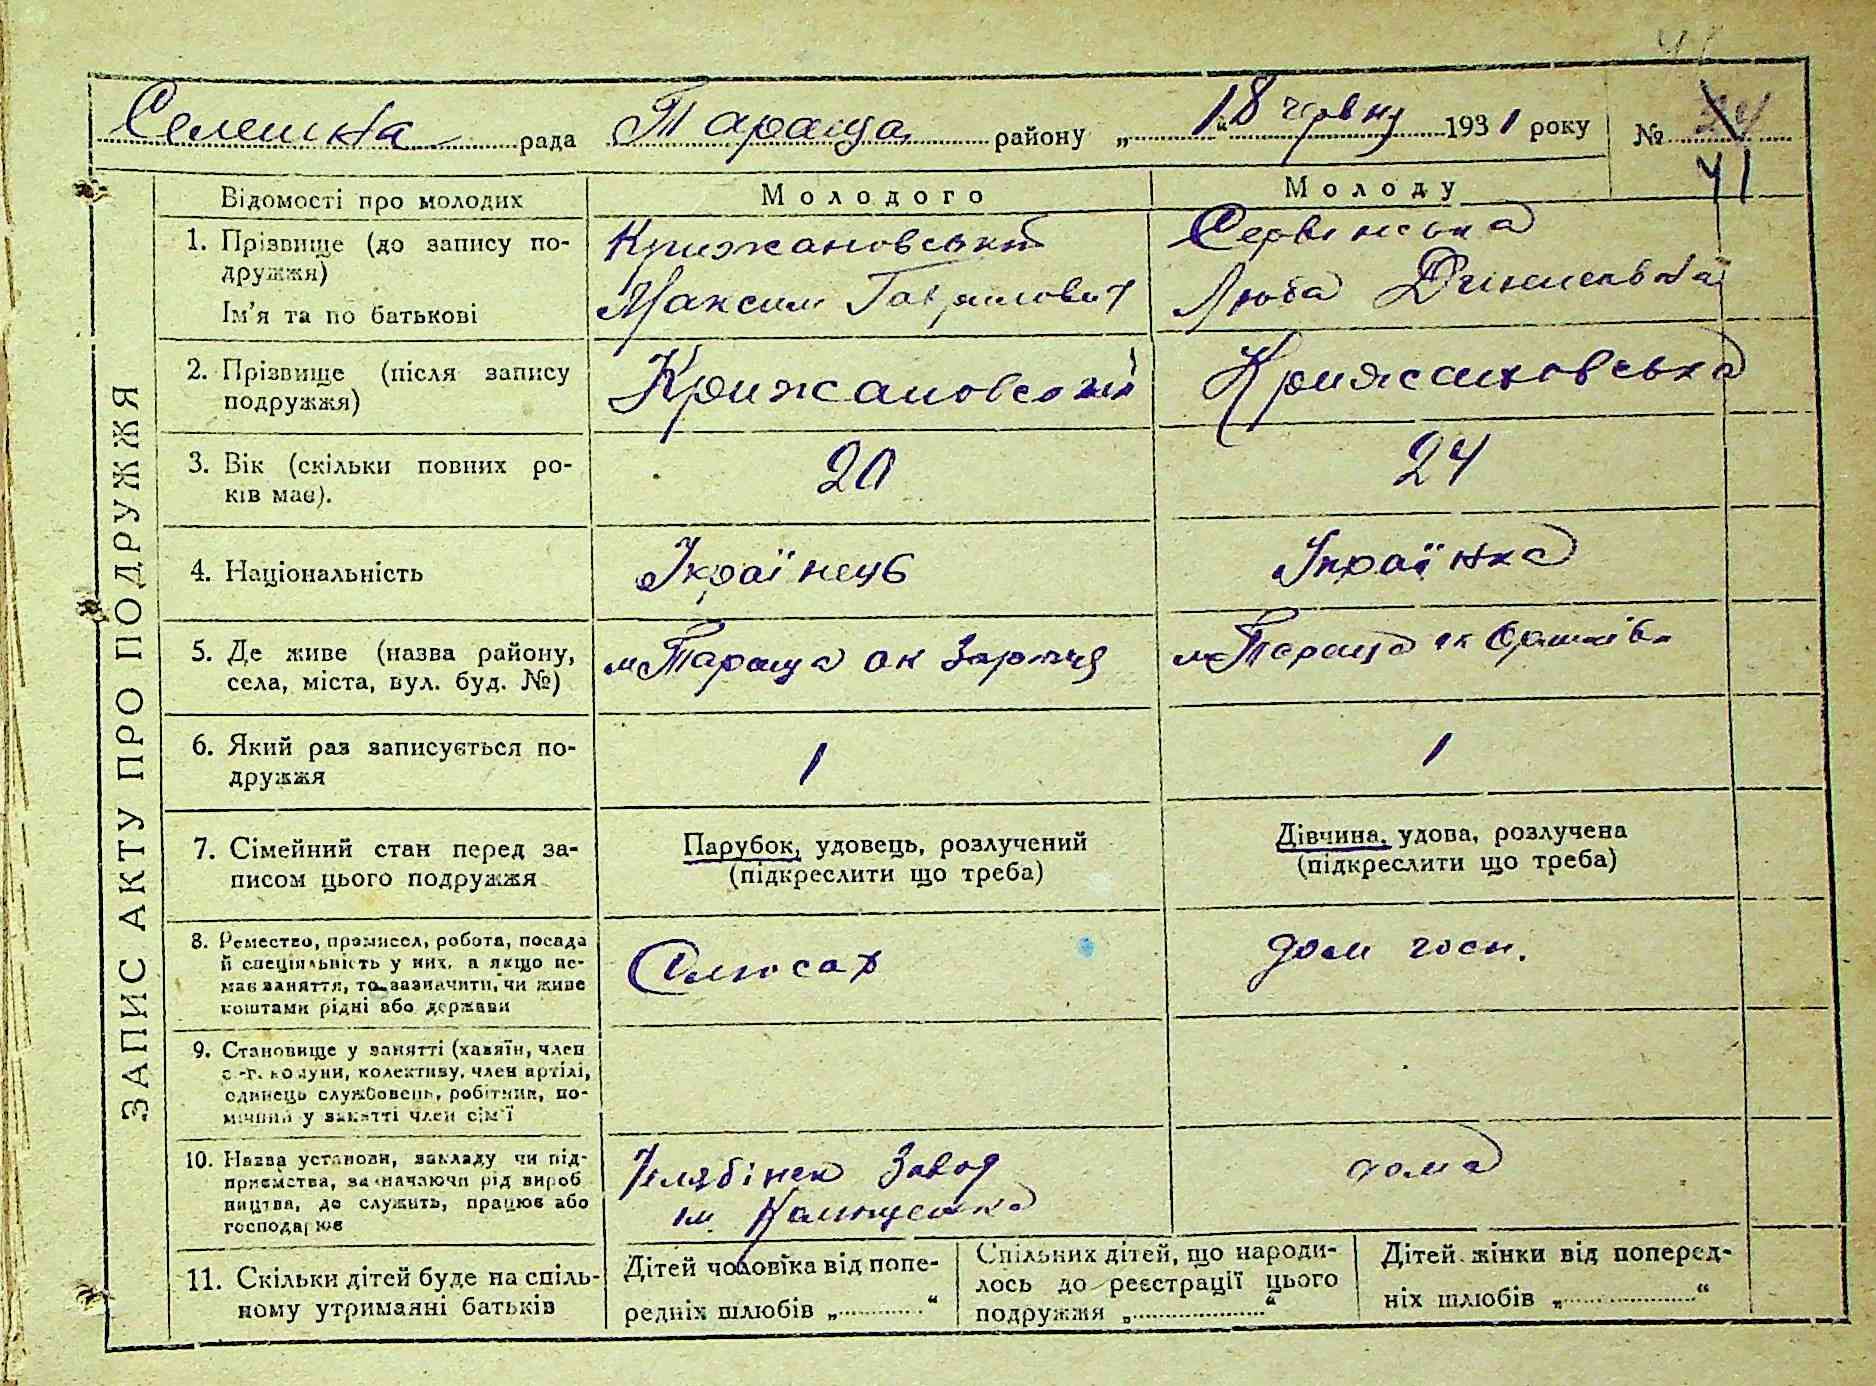 Селешна рада Тараща району „18" червня 1931 року № 24
41
ЗАПИС АКТУ ПРО ПОДРУЖЖЯ
Відомості про молодих
Молодого
Молоду
1. Прізвище (до запису по-
дружжя)
Ім'я та по батькові
Крижановський
Максим Гаврилович
Сервінська
Люба Денисівна
2. Прізвище (після запису
подружжя)
Крижановський
Крижановська
3. Вік (скільки повних ро-
ків має).
20
24
4. Національність
Українець
Українка
5. Де живе (назва району,
села, міста, вул. буд. №)
м Тараща ок Заріччя
м Тараща ок
6. Який раз записується по-
дружжя
1
1
7. Сімейний стан перед за-
писом цього подружжя
Парубок, удовець, розлучений
(підкреслити що треба)
Дівчина, удова, розлучена
(підкреслити що треба)
8. Ремество, промисел, робота, посада
й спеціяльність у них, а якщо не-
має заняття, то зазначити, чи живе
коштами рідні або держави
Слюсар
дом госп.
9. Становище у занятті (хазяїн, член
с.-г. комуни, колективу, член артілі,
одинець службовець, робітник, по-
мічний у занятті член сім'ї
10. Назва установи, закладу чи під-
приємства, зазначаючи рід вироб
ництва, де служить, працює або
господарює
Челябінск Завод
ім. Колющенка
дома
11. Скільки дітей буде на спіль-
ному утриманні батьків
Дітей чоловіка від попе-
редніх шлюбів „..........."
Спільних дітей, що народи-
лось до реєстрації цього
подружжя „..............."
Дітей жінки від поперед-
ніх шлюбів „..............."